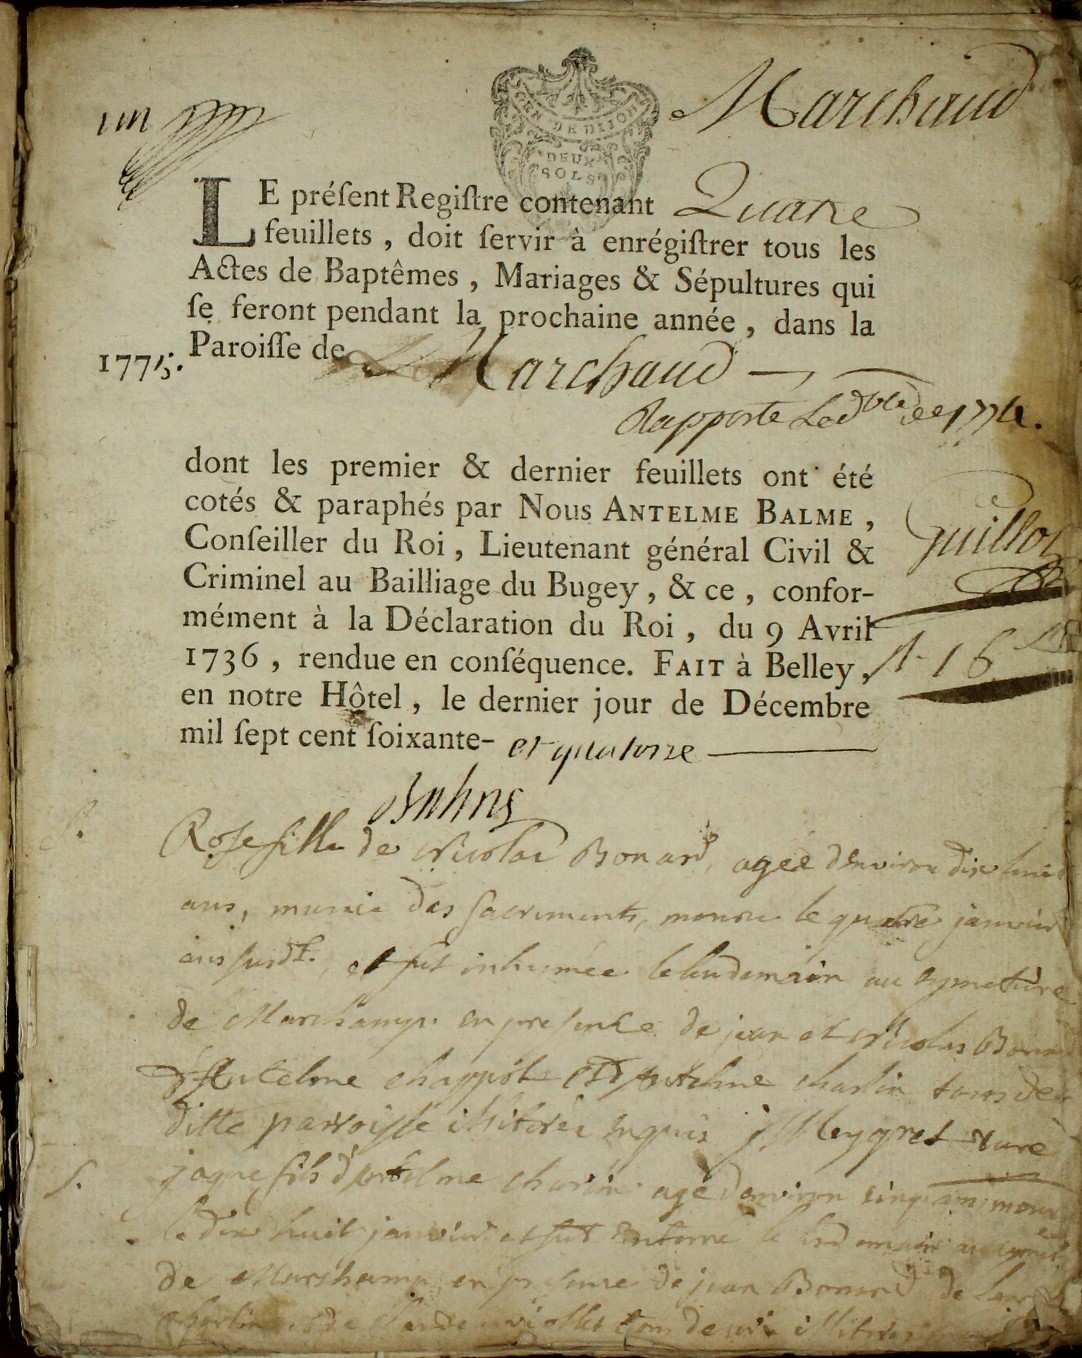 Marchaud
GEN. DE DIJON
DEUX
SOLS
LE préſent Regiſtre contenant Quatre
feuillets, doit ſervir à enrégiſtrer tous les
Actes de Baptêmes, Mariages & Sépultures qui
ſe feront pendant la prochaine année, dans la
1775. Paroiſſe de Marchaud
Rapporte Led ble de 1774.
dont les premier & dernier feuillets ont été
cotés & paraphés par Nous ANTELME BALME,
Conſeiller du Roi, Lieutenant général Civil &
Criminel au Bailliage du Bugey, & ce, confor-
mément à la Déclaration du Roi, du 9 Avril
1736, rendue en conſéquence. FAIT à Belley,
en notre Hôtel, le dernier jour de Décembre
mil ſept cent ſoixante- et quatorze
Guillot
16
Roſe fille de Nicolas Bonard, agée d'Environ dix huit
ans, munie des Sacrements, mourut le quatre janvier
an susdt. et fut inhumée le lendemain au cymetière
de Marchamp en presence de jean et Nicolas Bonard
d'Antelme chappot et d'Antelme charlin tous de
ditte parroisse illiterés enquis j. Meygret curé
S. jaque fils d'antelme charlin agé d'environ cinq ans, mourut
le dix huit janvier et fut enterré le lendemain au
de Marchamp en presence de jean Bonard de
charlin et de illiterés